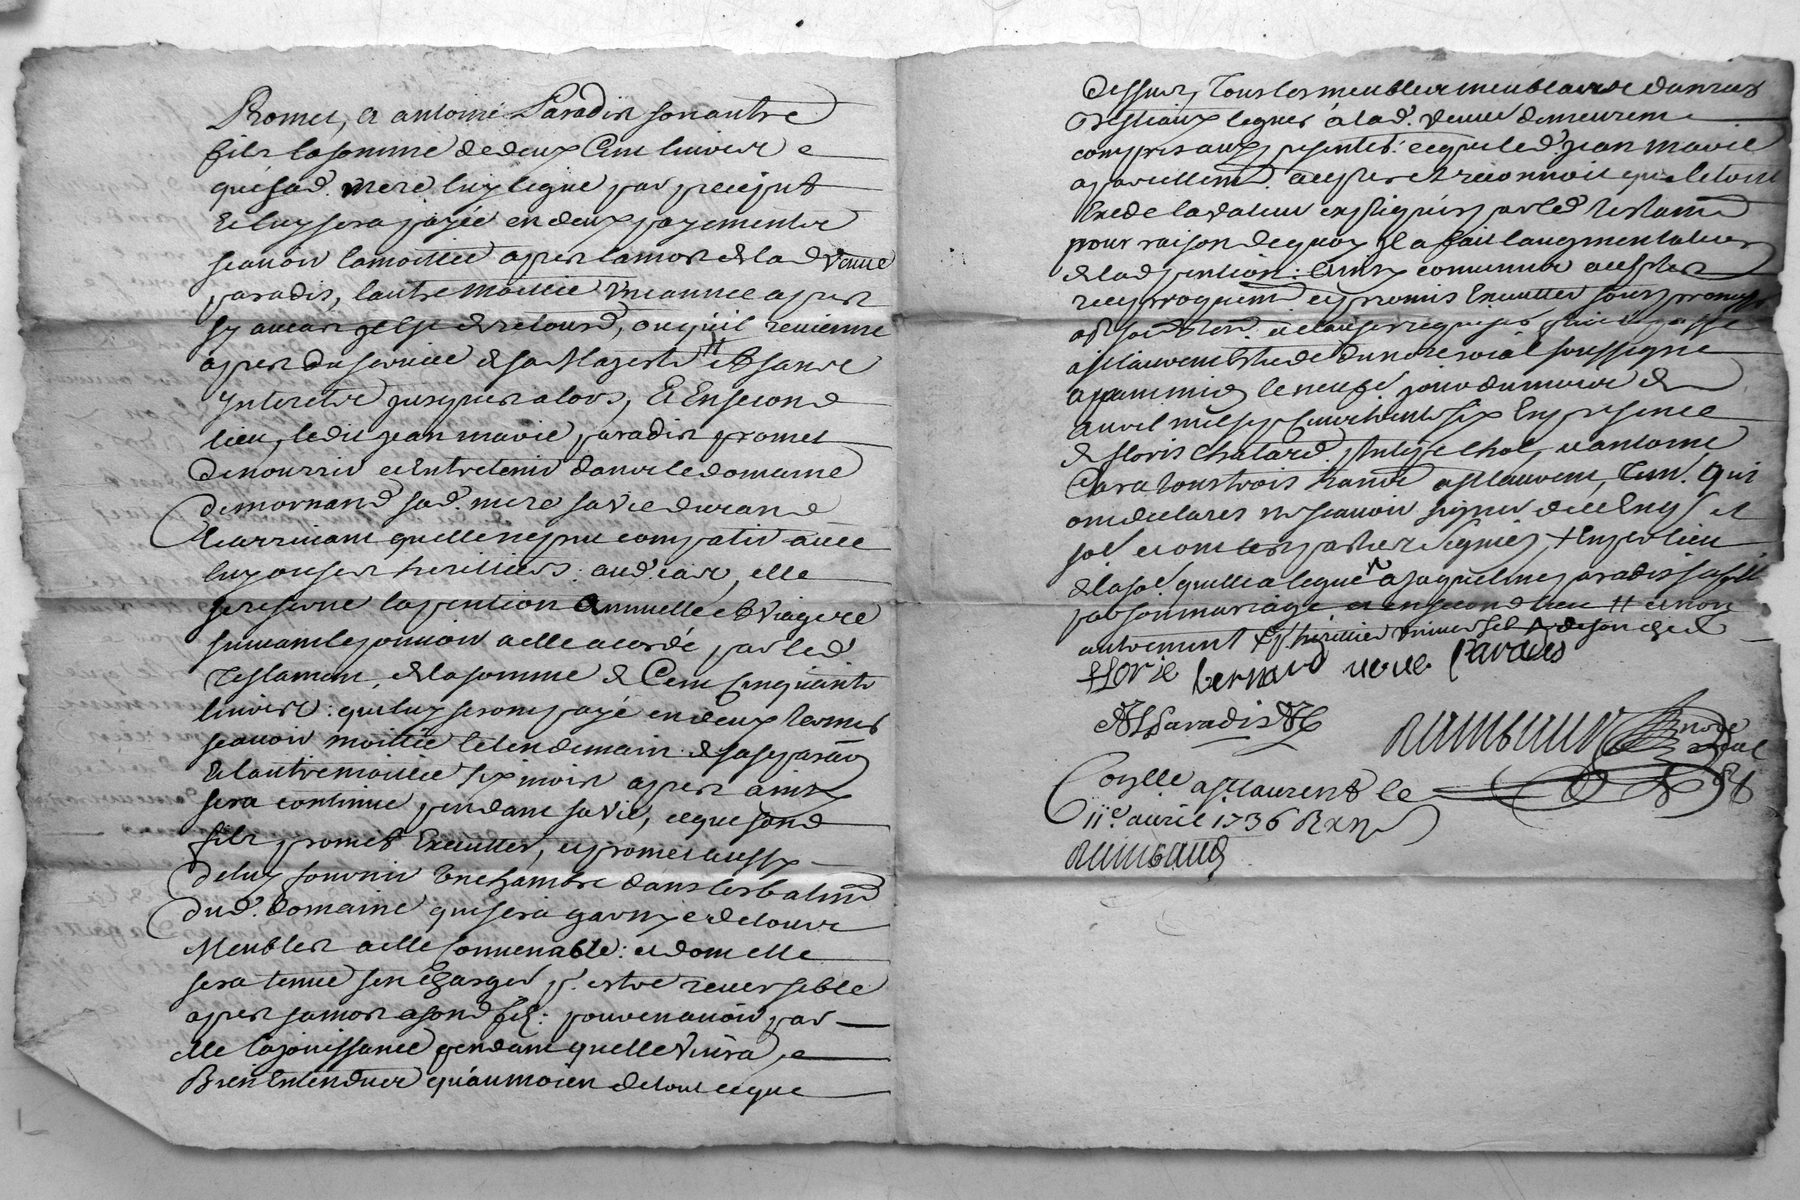 Promet, a antoine Paradis son autre
fils la somme de deux Cent livres e
que sad. mere luy legue par preciput
et luy sera payée en deux payements
scauoir la moitiée apres la mort de lad veuue
paradis, lautre moitiée une année apres
sy aucas il est de retourd, ou quil reuienne
apres du seruice de sa Majesté # et sans
Interets jusques alors, Et En second
lieu, ledit jean marie paradis promet
de nourrir et Entretenir dans le domaine
de mornand sad. mere sa vie durand
Et arriuant quelle ne peut compatir auec
luy ou ses heritiers: aud. cas, elle
se reserue la pention annuelle et viagere
suiuant le pouuoir a elle acordé par led
Testament, de la somme de Cent Cinquante
liures: qui luy seront payé en deux termes
scauoir moitiée le lendemain de sa separaon
Et lautre moitiée six mois apres ainsy
sera continué pendant sa vie, ce que sond
fils promet Executter, et promet aussy
de luy fournir une chambre dans les batimd
dud. domaine qui sera garnye de tous
Meubles a elle Conuenable: et dont elle
sera tenue sen charger p. estre reuersible
apres sa mort a sond fils: pouuenauoir par
elle la jouissance pendant quelle viura, e
Bien Entendues qu'au moien de tout ce que
dessus, Tous les meubles meublants danrees
Bestiaux legues a lad. veuue demeurent
compris aux presentes: ce que led. jean marie
pareillemt. accepte et reconnoit que le tout
Exede la valeur expliquées par led testamt
pour raison de quoy Il a fait laugmentation
de lad pention: Ainsy conuenue accepter
reciproquemt et promis Executter sous promesse
obligaon & clauses requises fait et passé
a st laurent Etude du notre roial soussigné
apres midy le neufe jour du mois de
auril mil sept cent trente six En presence
de floris Chatard, philipe Chol, et antoine
Cara tous trois habts a st laurent, Tem. Qui
ont declarés ne scauoir signer de ce Enq et
som. et ont les parties signées, + En premier lieu
de la so. quelle a legué a jaqueline paradis sa fille
par son mariage et en second lieu # et non
autrement + p. heritier vniuersel de son chef
florie bernard veue Paradis
JM Paradis
Raimbaud Not Roial
Conlle a St laurent le
11e. auril 1736 R xn s
Raimbaud